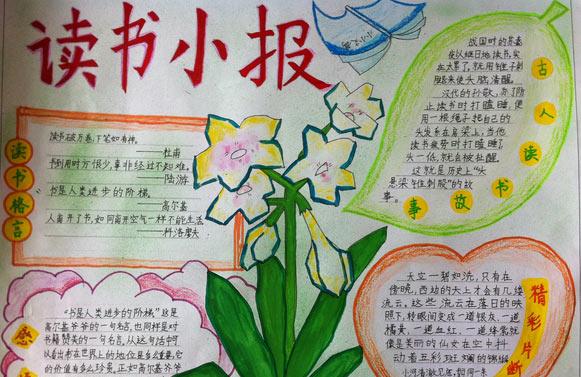 读书小报
读书格言
读书破万卷,下笔如有神。
——杜甫
书到用时方恨少,事非经过不知难。
——陆游
书是人类进步的阶梯。
——高尔基
人离开了书,如同离开空气一样不能生活
——科洛廖夫
古人读书故事
战国时的苏秦
夜以继日地读书,实
在太累了,就用锥子刺
腿来使头脑清醒。
汉代的孙敬,为了防
止读书时打瞌睡,便
用一根绳子把自己的
头发系在房梁上,当他
读书疲劳时打瞌睡了
头一低,就会被扯醒
这就是历史上"头
悬梁与锥刺股"的故
事。
"书是人类进步的阶梯"这是
高尔基爷爷的一句名言,也同样是对
书籍赞美的一句名言,从这句话中可
以看出书在世界上的地位是多么重要,它
的价值有多么珍贵,正如高尔基爷爷
精彩片断
天空一碧如洗,只有在
傍晚,西边的天上才会有几缕
流云,这些流云在落日的映
照下,转眼间变成一道银灰,一道
橘黄,一道血红,一道绛紫,就
像是美丽的仙女在空中抖
动着五彩斑斓的锦缎